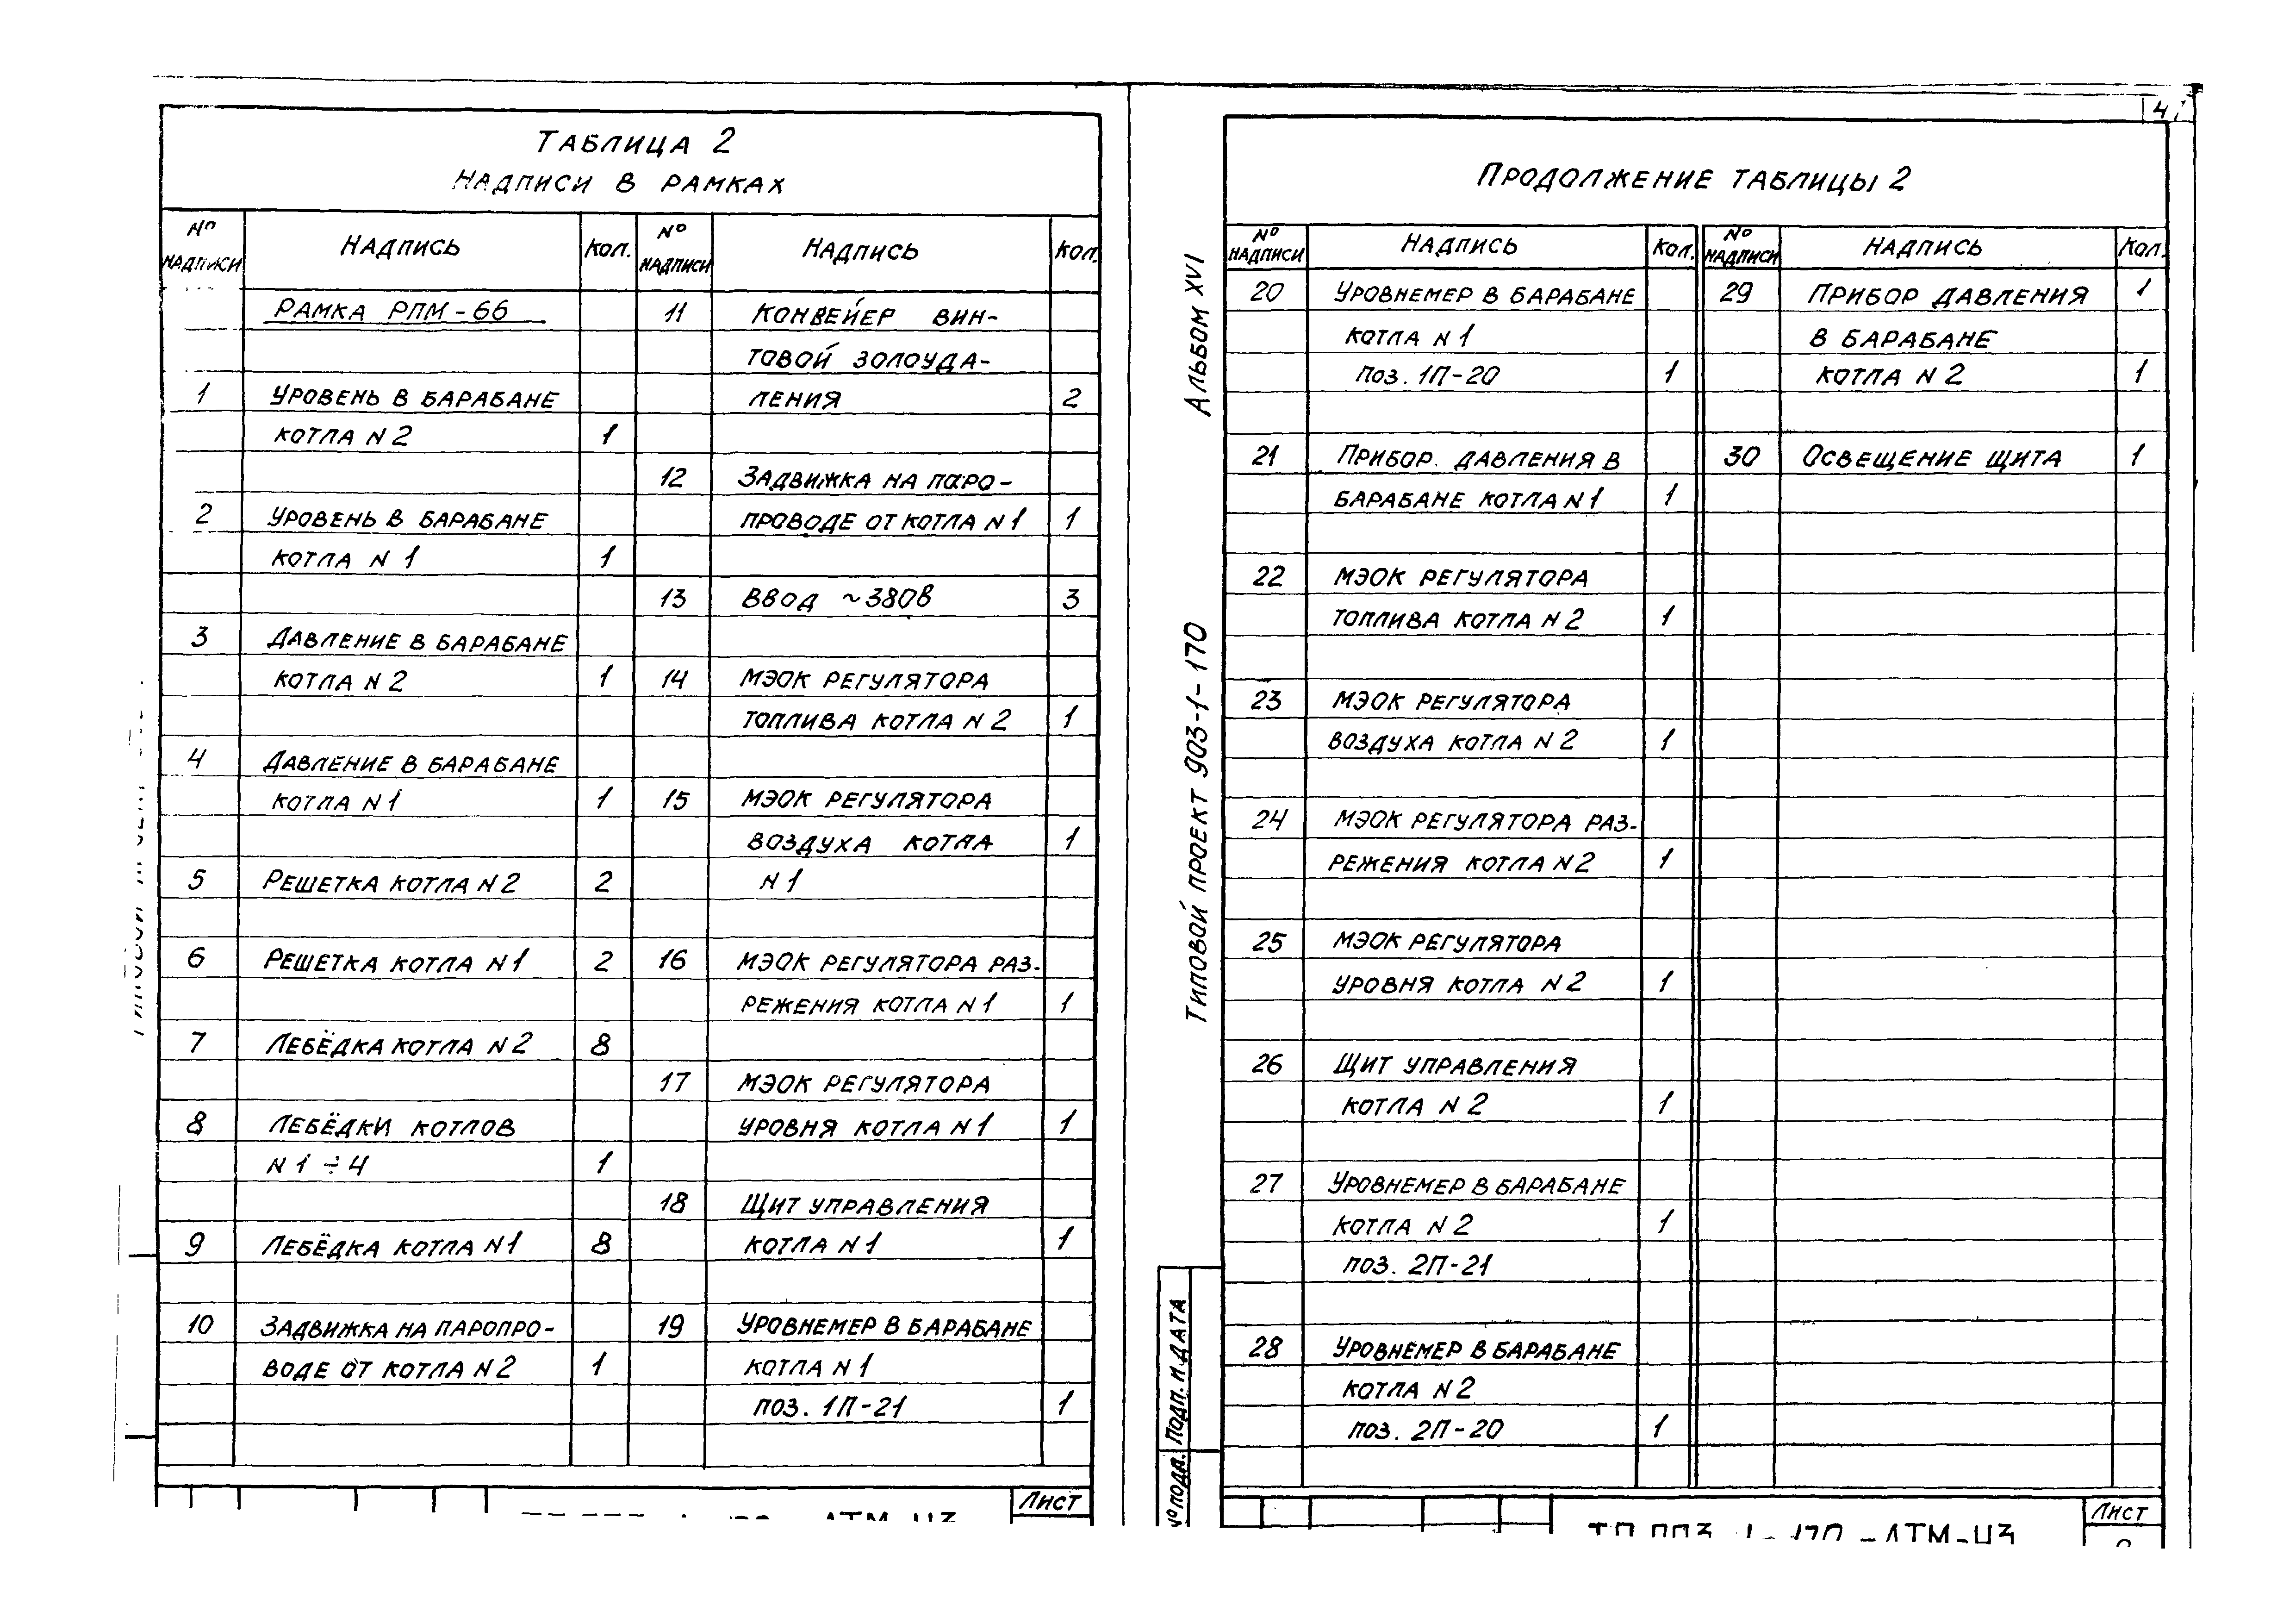 4
Таблица 2
Надписи в рамках
№ надписи Надпись Кол. № надписи Надпись Кол.
Рамка РПМ-66
1 Уровень в барабане
котла N 2 1
2 Уровень в барабане
котла N 1 1
3 Давление в барабане
котла N 2 1
4 Давление в барабане
котла N 1 1
5 Решетка котла N 2 2
6 Решетка котла N 1 2
7 Лебёдка котла N 2 8
8 Лебёдки котлов
N 1 ÷ 4 1
9 Лебёдка котла N 1 8
10 Задвижка на паропро-
воде от котла N 2 1
11 Конвейер вин-
товой золоуда-
ления 2
12 Задвижка на паро-
проводе от котла N 1 1
13 Ввод ~380в 3
14 МЭОК регулятора
топлива котла N 2 1
15 МЭОК регулятора
воздуха котла 1
N 1
16 МЭОК регулятора раз-
режения котла N 1 1
17 МЭОК регулятора
уровня котла N 1 1
18 Щит управления
котла N 1 1
19 Уровнемер в барабане
котла N 1
поз. 1П-21 1
Лист
Альбом XVI
Типовой проект 903-1-170
Подп. и дата
№ подл.
Продолжение таблицы 2
№ надписи Надпись Кол. № надписи Надпись Кол.
20 Уровнемер в барабане
котла N 1
поз. 1П-20 1
21 Прибор. давления в
барабане котла N 1 1
22 МЭОК регулятора
топлива котла N 2 1
23 МЭОК регулятора
воздуха котла N 2 1
24 МЭОК регулятора раз-
режения котла N 2 1
25 МЭОК регулятора
уровня котла N 2 1
26 Щит управления
котла N 2 1
27 Уровнемер в барабане
котла N 2 1
поз. 2П-21
28 Уровнемер в барабане
котла N 2
поз. 2П-20 1
29 Прибор давления 1
в барабане
котла N 2 1
30 Освещение щита 1
Лист